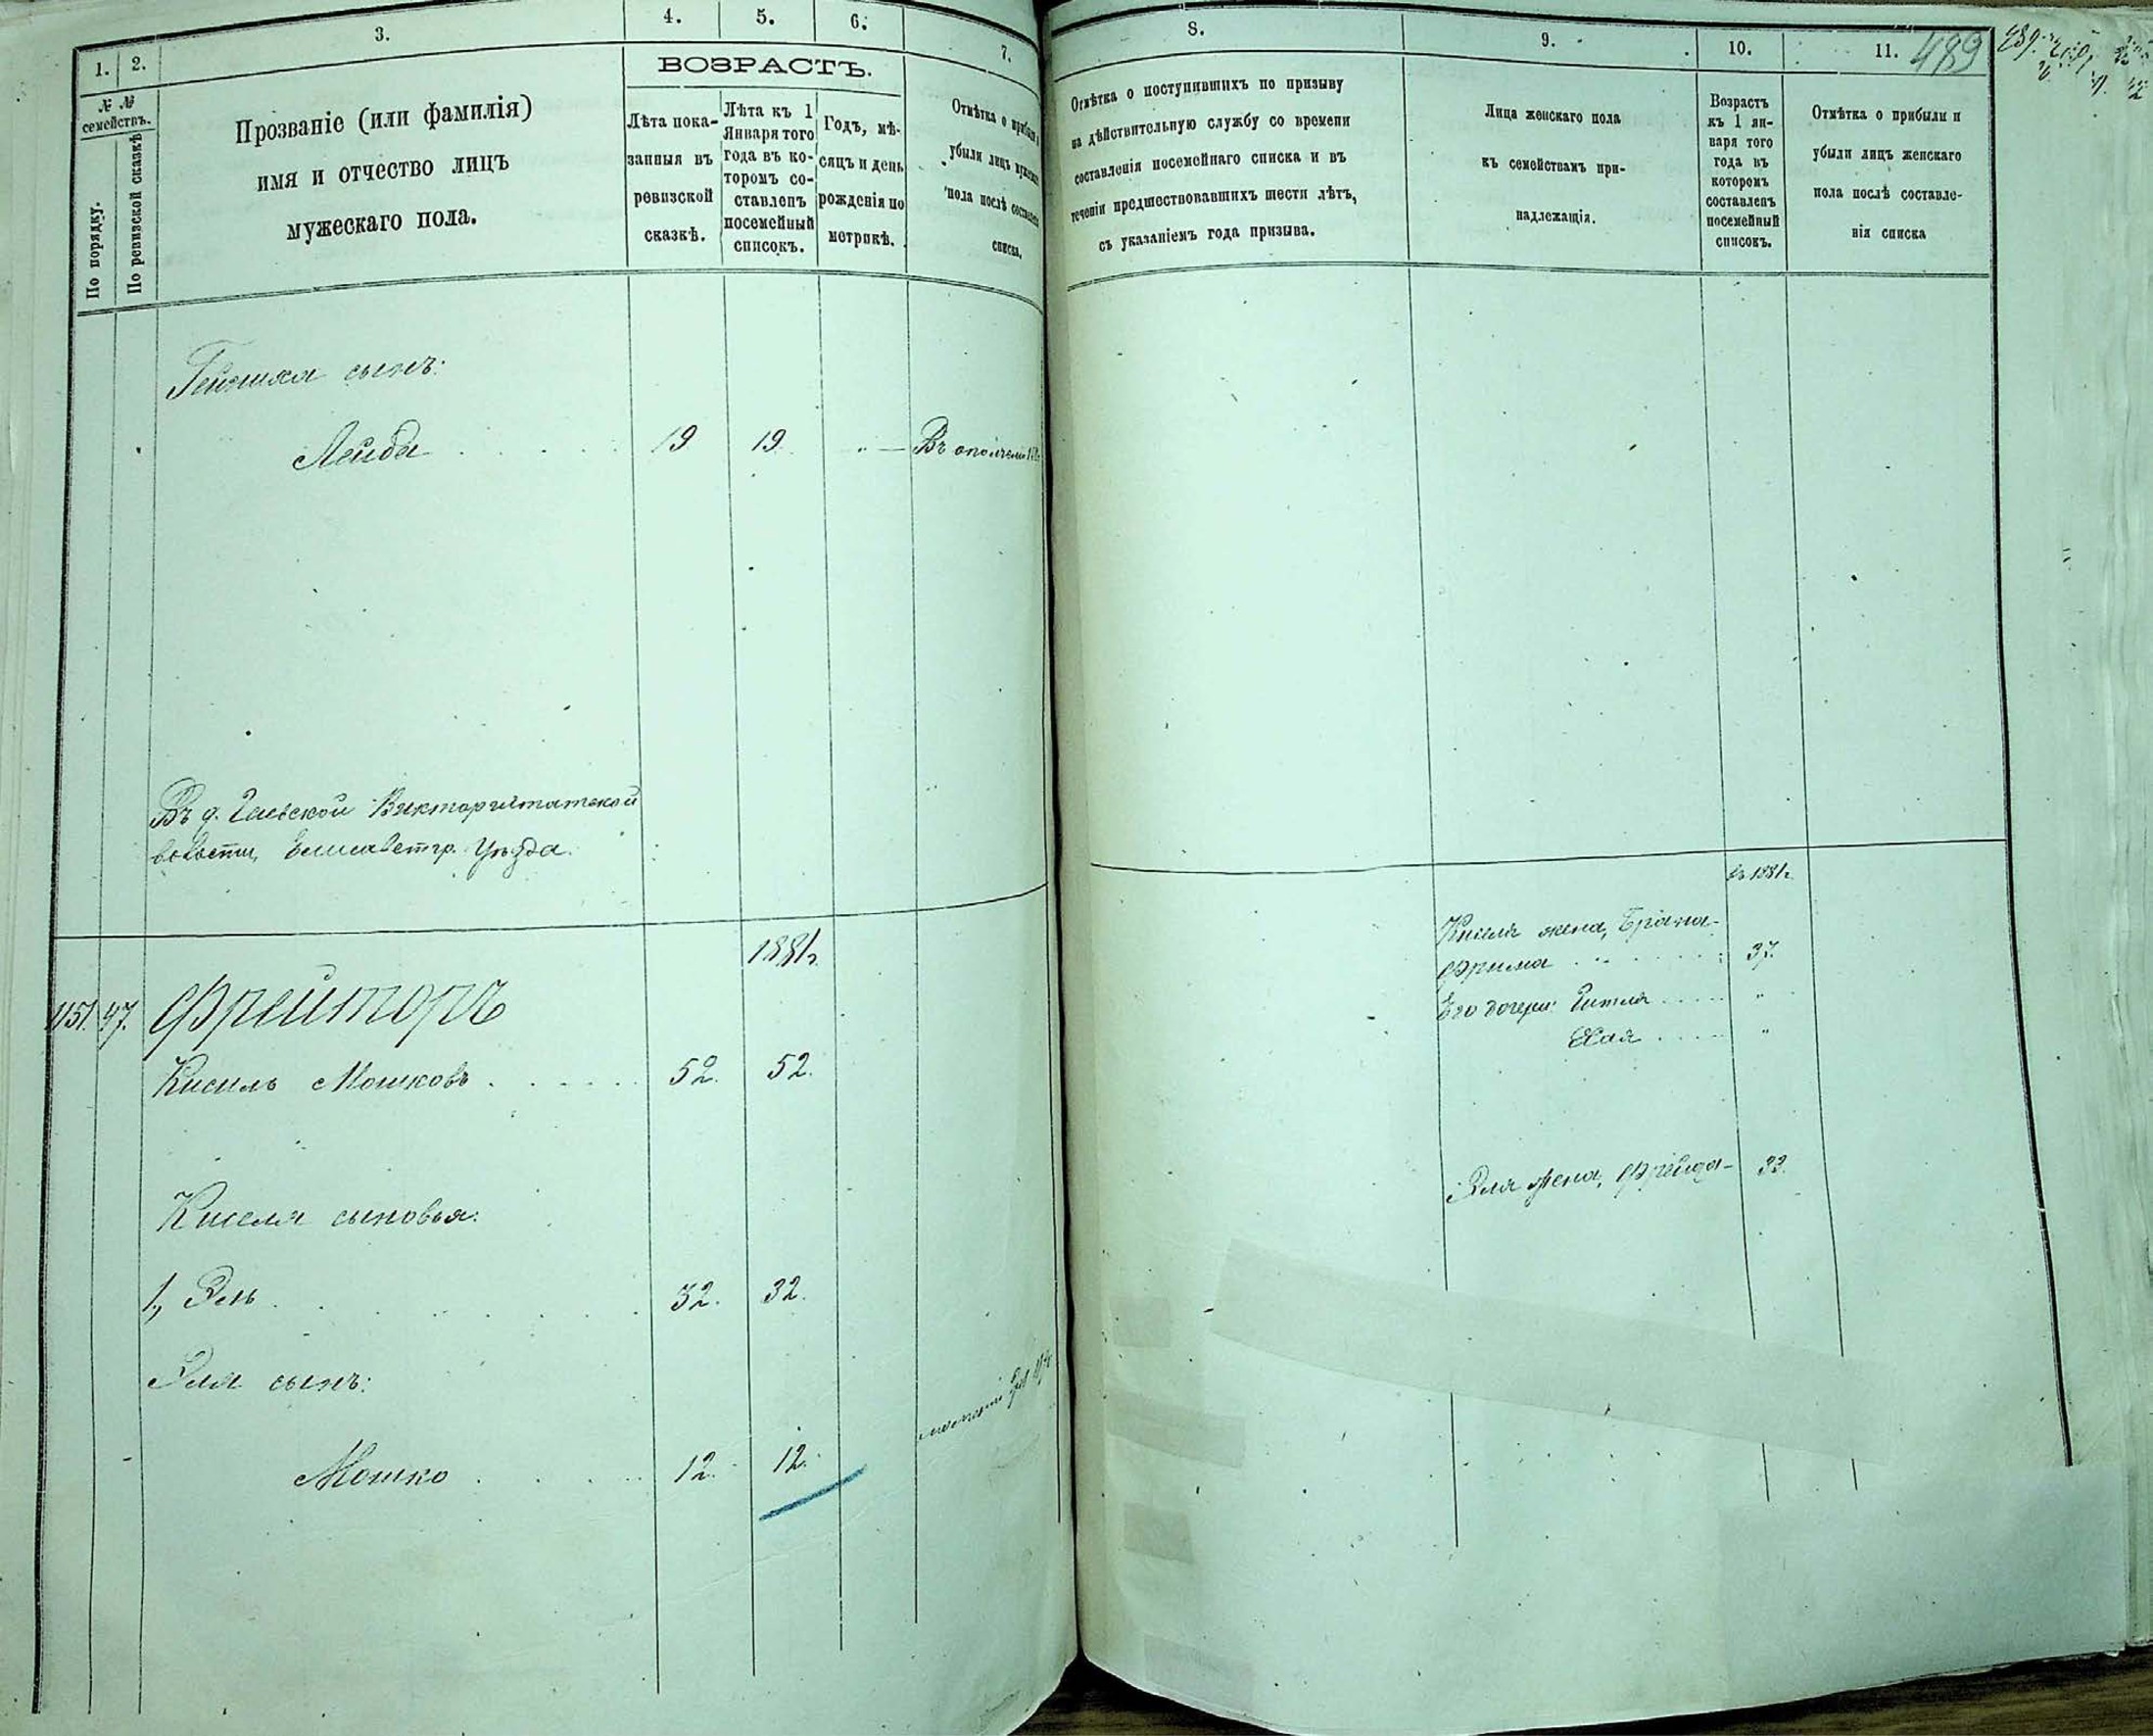 1. 2. 3. 4. 5. 6. 7.
ВОЗРАСТЪ.
№ №
семействъ.
По порядку.
По ревизской сказкѣ
Прозваніе (или фамилія)
имя и отчество лицъ
мужескаго пола.
Лѣта пока-
занныя въ
ревизской
сказкѣ.
Лѣта къ 1
Января того
года въ ко-
торомъ со-
ставленъ
посемейный
списокъ.
Годъ, мѣ-
сяцъ и день
рожденія по
метрикѣ.
Отмѣтка о прибыли
убыли лицъ
пола послѣ
списка.
сынъ:
Лейба 19 19. Въ
Въ д.
волости, Елисаветгр. Уѣзда.
1881г.
1151. 47. Фрейторъ
Кисиль Мошковъ 52. 52.
Киселя сыновья:
1, Эль 32. 32.
Эля сынъ:
Мошко 12. 12.
8. 9. 10. 11. 489
Отмѣтка о поступившихъ по призыву
на дѣйствительную службу со времени
составленія посемейнаго списка и въ
теченіи предшествовавшихъ шести лѣтъ,
съ указаніемъ года призыва.
Лица женскаго пола
къ семействамъ при-
надлежащія.
Возрастъ
къ 1 ян-
варя того
года въ
которомъ
составленъ
посемейный
списокъ.
Отмѣтка о прибыли и
убыли лицъ женскаго
пола послѣ составле-
нія списка
Въ 1881г.
Киселя жена,
Фрима 37.
Его дочери: Гитля "
Хая "
Эля жена, Фрейда 33.